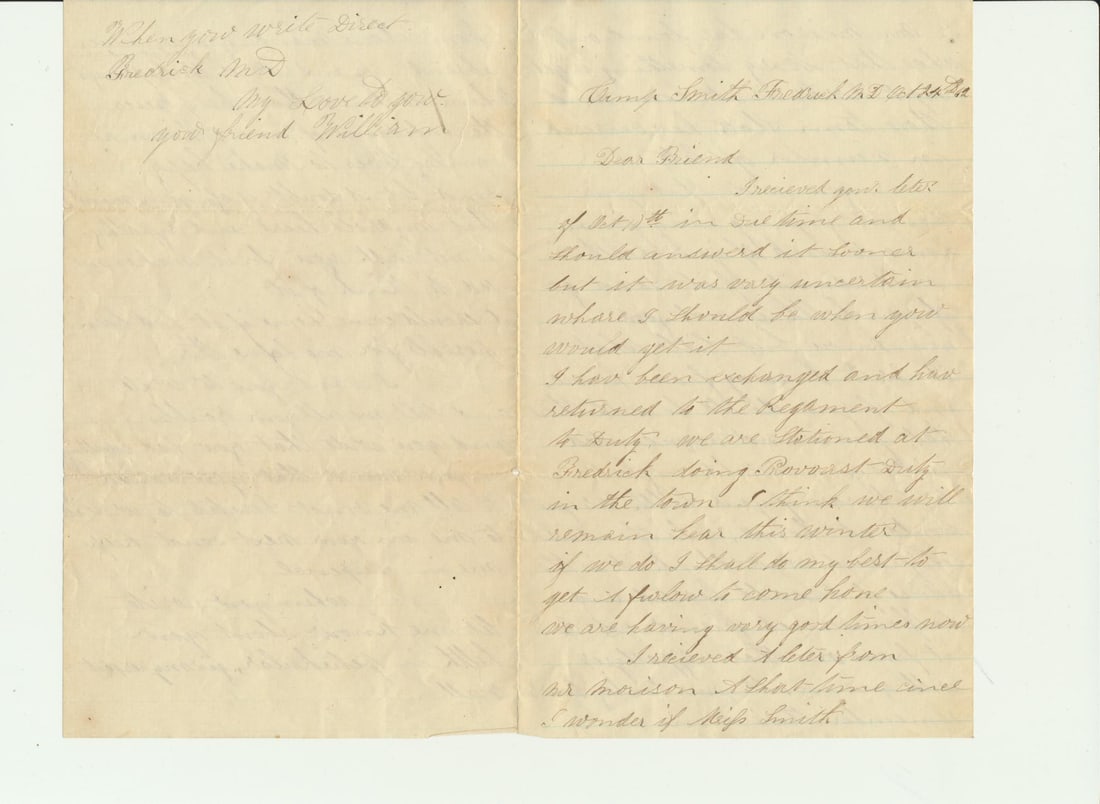 When yow write Direct
Fredrick MD
My Love to yow
yowr friend William
Camp Smith Fredrick MD Oct 24th
Dear Friend
I recieved yowr leter
of Oct in Due time and
should answerd it sooner
but it was vary uncertain
whare I should be when yow
would get it
I hav been exchanged and hav
returned to the Regament
to Duty we are Stationed at
Fredrick doing Provoast Duty
in the town I think we will
remain hear this winter
if we do I shall do my best to
get A furlow to come home
we are having vary good times now
I recieved A leter from
Mr Morison A short time cince
I wonder if Miss Smith